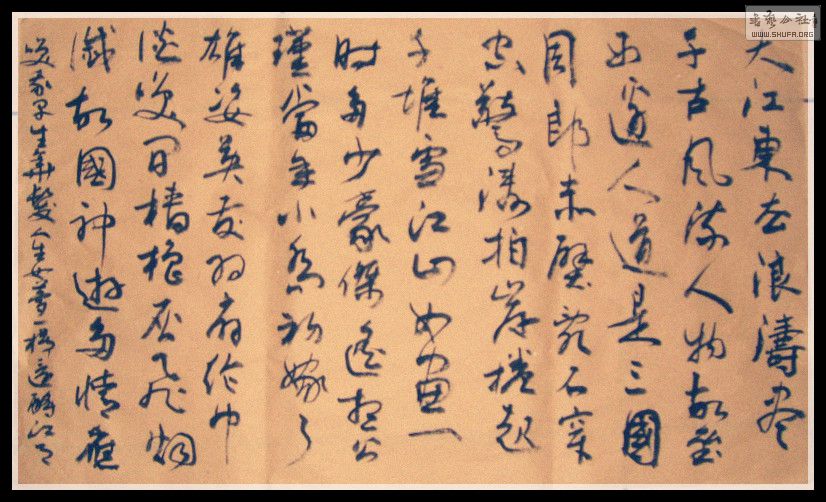 大江東去浪濤盡
千古風流人物故壘
西邊人道是三國
周郎赤壁亂石穿
空驚濤拍岸捲起
千堆雪江山如畫一
時多少豪傑遙想公
瑾當年小喬初嫁了
雄姿英發羽扇綸巾
談笑间檣櫓灰飛烟
滅故國神遊多情應
笑我早生華髮人生如夢一樽還酹江月
書藝公社
WWW.SHUFA.ORG